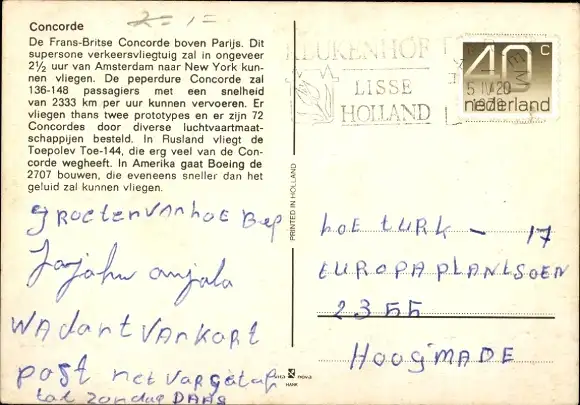 Concorde
2=1=
De Frans-Britse Concorde boven Parijs. Dit
supersone verkeersvliegtuig zal in ongeveer
2½ uur van Amsterdam naar New York kun-
nen vliegen. De peperdure Concorde zal
136-148 passagiers met een snelheid
van 2333 km per uur kunnen vervoeren. Er
vliegen thans twee prototypes en er zijn 72
Concordes door diverse luchtvaartmaat-
schappijen besteld. In Rusland vliegt de
Toepolev Toe-144, die erg veel van de Con-
corde wegheeft. In Amerika gaat Boeing de
2707 bouwen, die eveneens sneller dan het
geluid zal kunnen vliegen.
groeten van hoe Bep
Jajahn anjala
wadant van kart
post net vargatap
tat zondag DAAG
PRINTED IN HOLLAND
HANK
KEUKENHOF
LISSE
HOLLAND
40 c
nederland
hoE tURK - 17
EUROPAPLANtSOEN
2355
HoogMADE